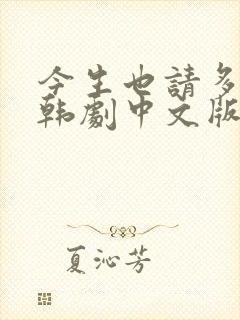 今生也請多
韩劇中文版
夏沁芳